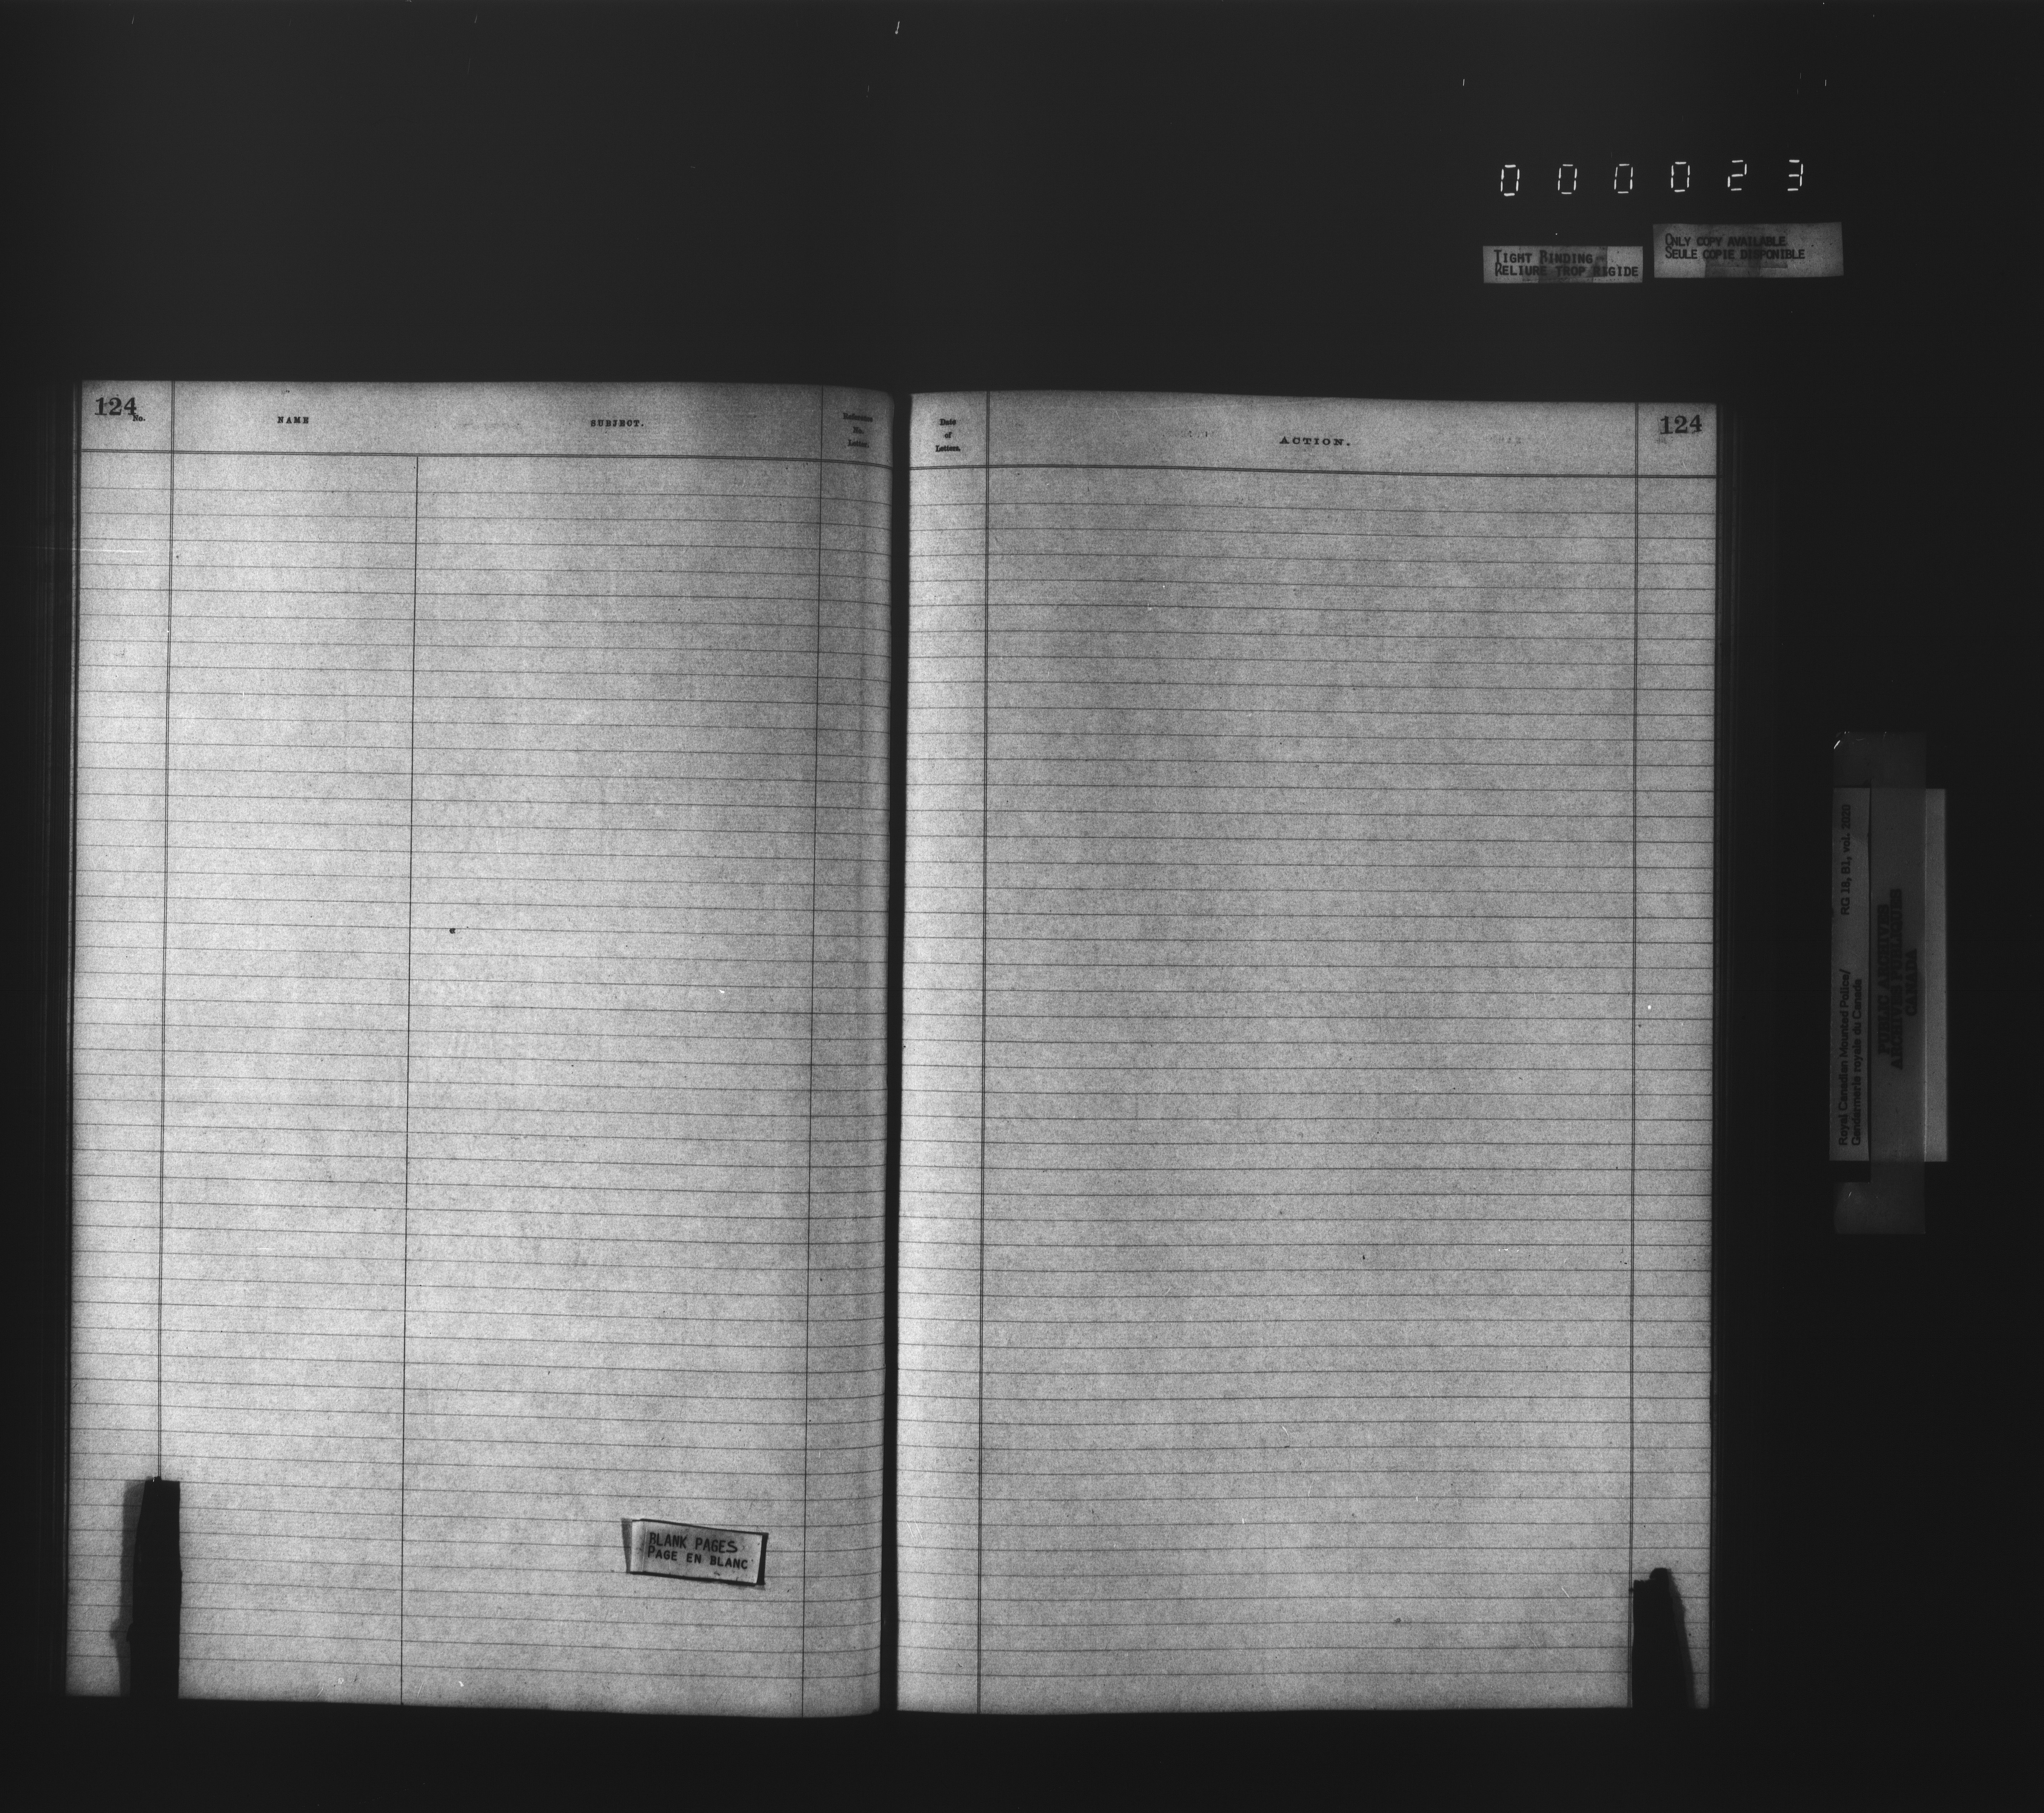 000023
TIGHT BINDING
RELIURE TROP RIGIDE
ONLY COPY AVAILABLE
SEULE COPIE DISPONIBLE
124
No.
NAME
SUBJECT.
Reference
No.
Letter.
Date
of
Letters.
ACTION.
124
BLANK PAGES
PAGE EN BLANC
Royal Canadian Mounted Police/
Gendarmerie royale du Canada
RG 18, B1, vol. 2020
PUBLIC ARCHIVES
ARCHIVES PUBLIQUES
CANADA